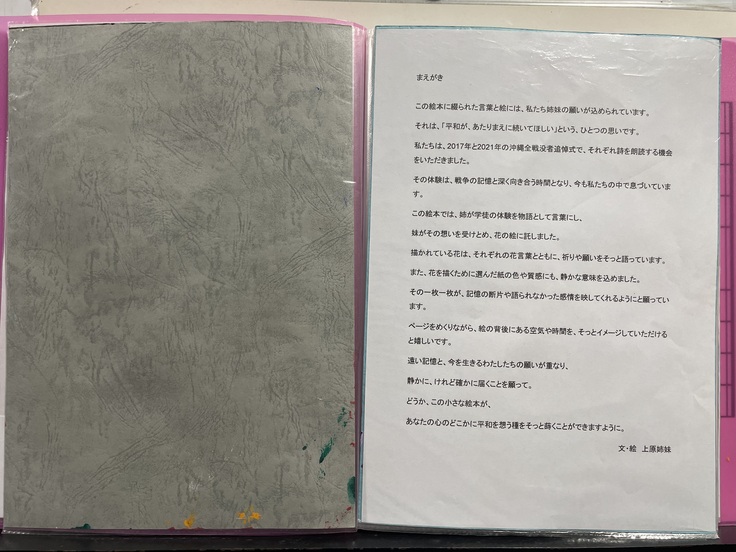 まえがき
この絵本に綴られた言葉と絵には、私たち姉妹の願いが込められています。
それは、「平和が、あたりまえに続いてほしい」という、ひとつの思いです。
私たちは、2017年と2021年の沖縄全戦没者追悼式で、それぞれ詩を朗読する機会
をいただきました。
その体験は、戦争の記憶と深く向き合う時間となり、今も私たちの中で息づいていま
す。
この絵本では、姉が学徒の体験を物語として言葉にし、
妹がその想いを受けとめ、花の絵に託しました。
描かれている花は、それぞれの花言葉とともに、祈りや願いをそっと語っています。
また、花を描くために選んだ紙の色や質感にも、静かな意味を込めました。
その一枚一枚が、記憶の断片や語られなかった感情を映してくれるようにと願ってい
ます。
ページをめくりながら、絵の背後にある空気や時間を、そっとイメージしていただける
と嬉しいです。
遠い記憶と、今を生きるわたしたちの願いが重なり、
静かに、けれど確かに届くことを願って。
どうか、この小さな絵本が、
あなたの心のどこかに平和を想う種をそっと蒔くことができますように。
文・絵 上原姉妹